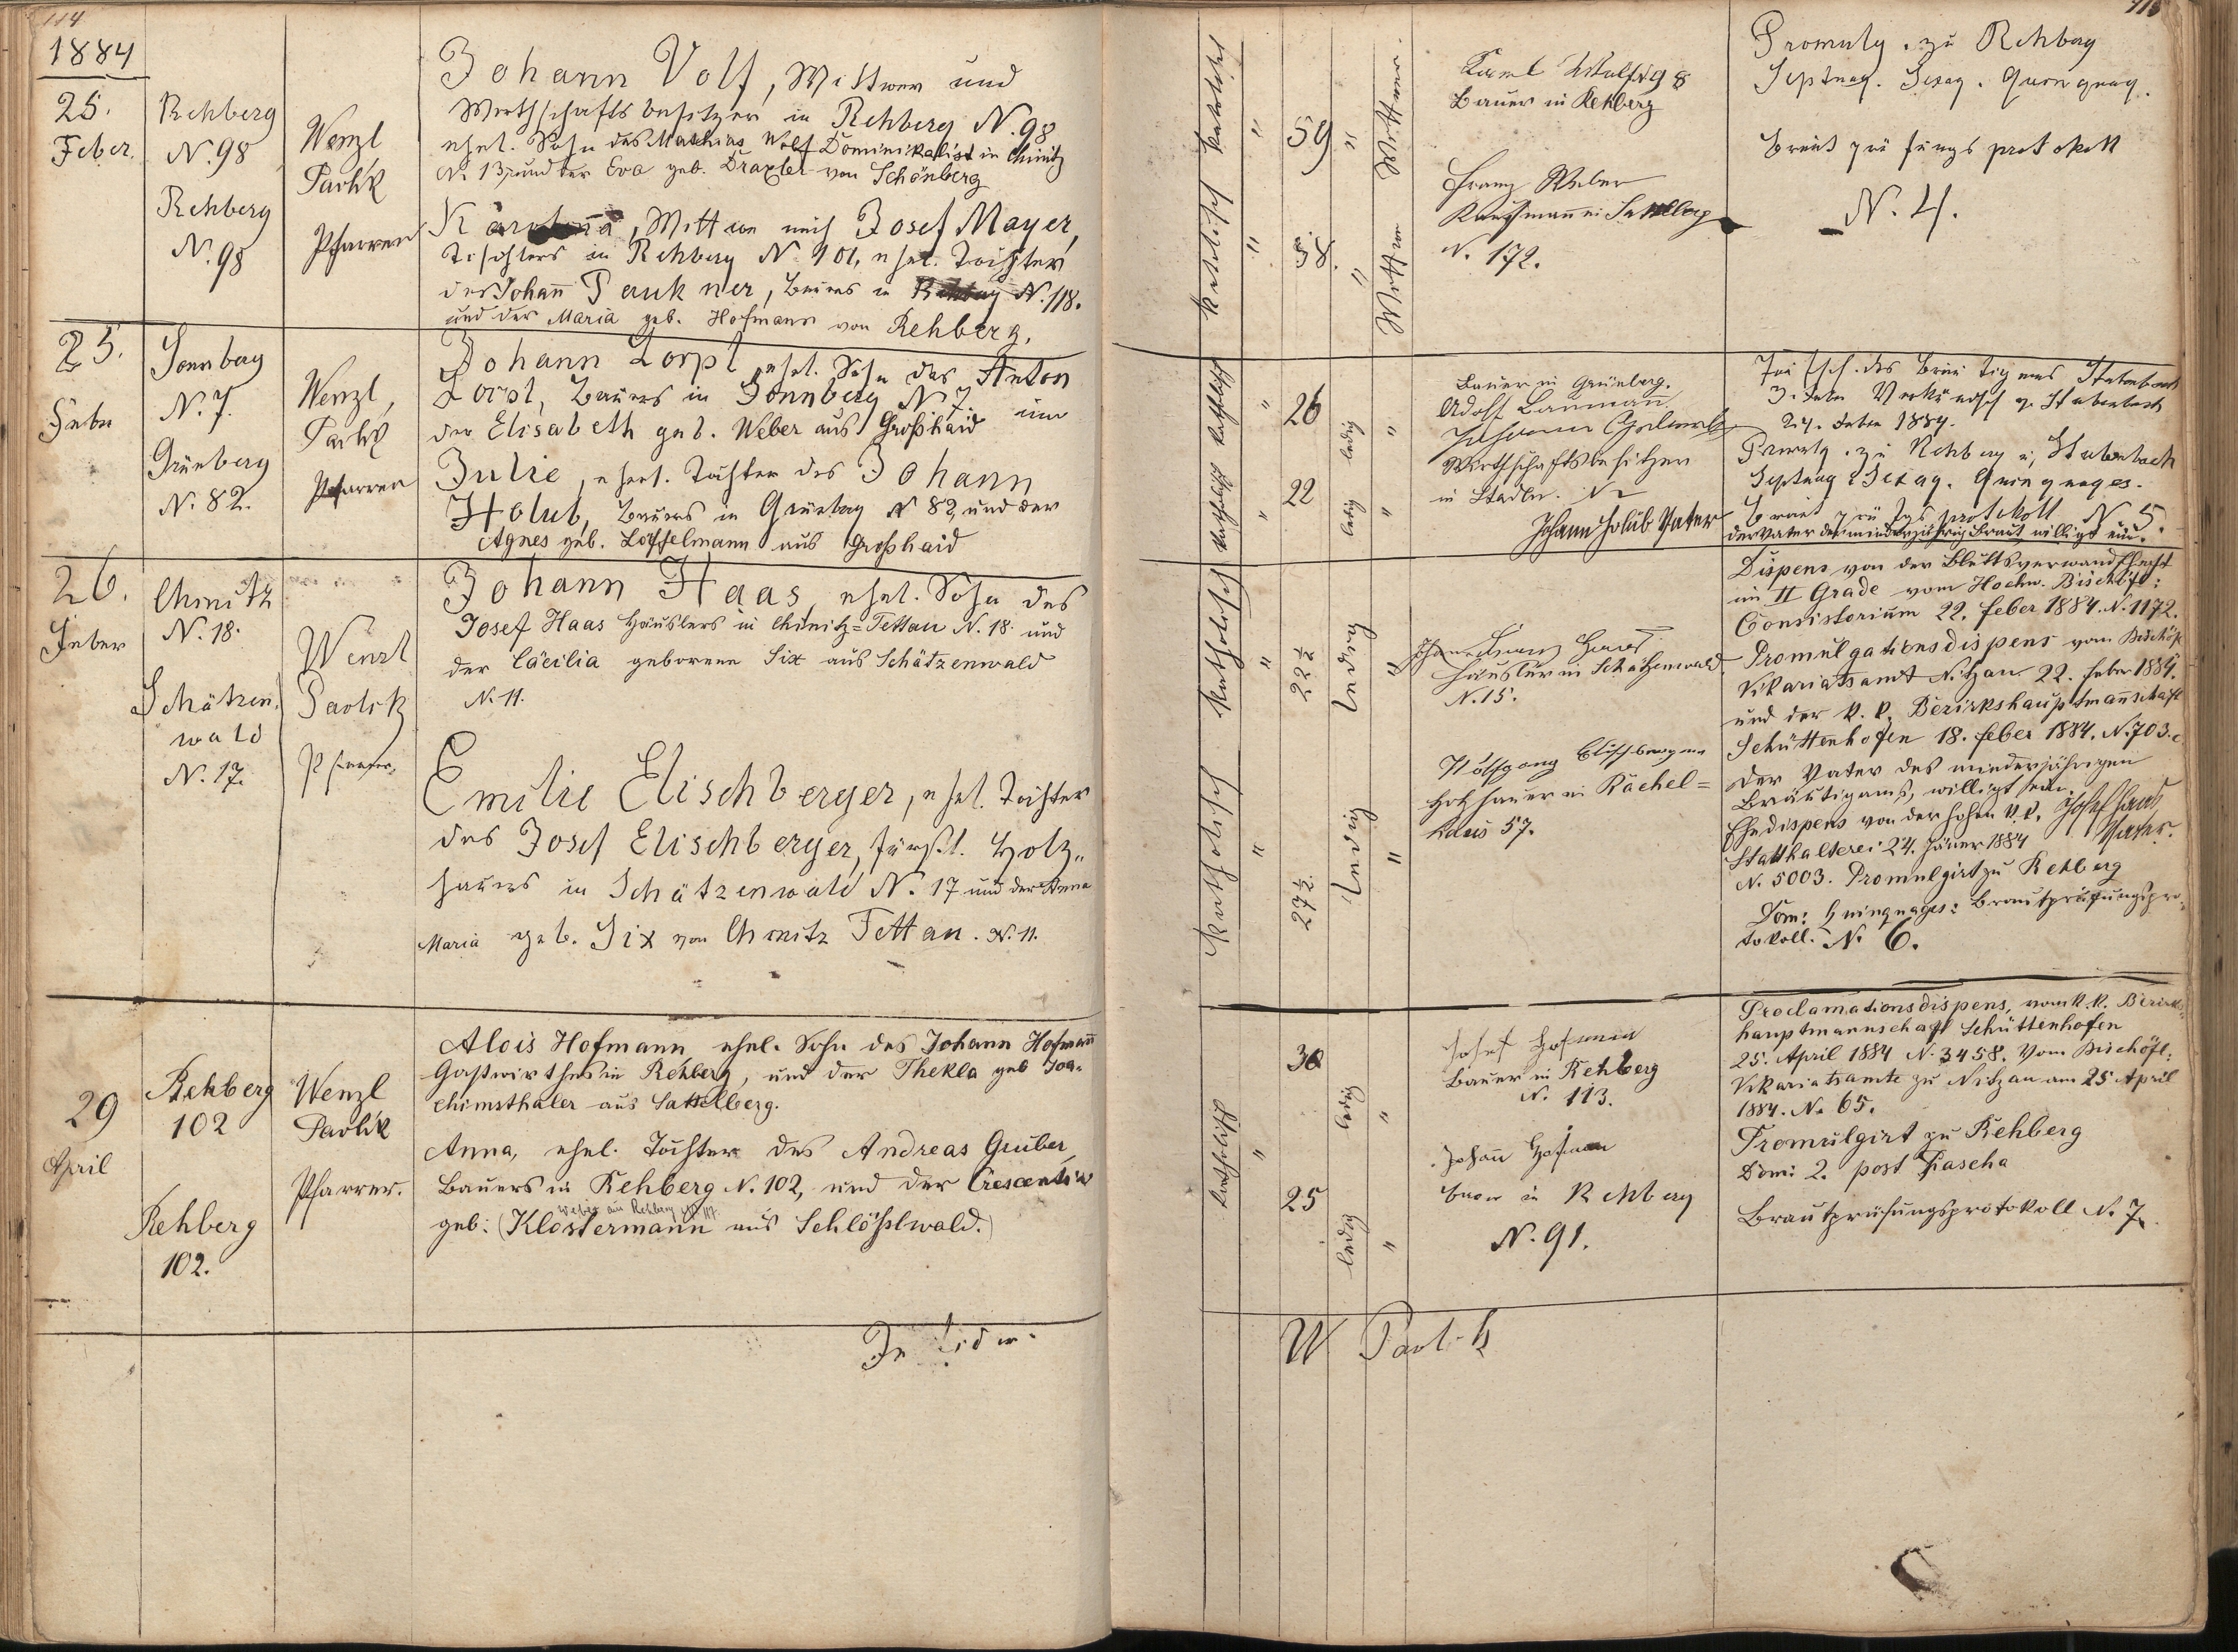 114
1884
25.
Feber.
Rehberg
N. 98
Rehberg
N. 98
Wenzl
Pavlik
Pfarrer
Johann Wolf, Wittwer und
Wirthschaftsbesitzer in Rehberg N. 98
ehel. Sohn des Mathias Wolf Dominikalist in Chinitz
N. 13, und der Eva geb. Draxler von Schönberg
Wittwe nach Josef Mayer,
Tischlers in Rehberg N. 101, ehel. Tochter
des Johann Paukner, Bauers in Rehberg N. 118.
und der Maria geb. Hofmann von Rehberg.
25.
Feber
Sonnberg
N. 7.
Grünberg
N. 82.
Wenzl
Pavlik
Pfarrer
Johann Zorpl, ehel. Sohn des Anton
Zorpl, Bauers in Sonnberg N 7 und
der Elisabeth geb. Weber aus Großhaid
Julie, ehel. Tochter des Johann
Holub, Bauers in Grünberg N 82, und der
Agnes geb. Löffelmann aus Großhaid
26.
Feber
Chinitz
N. 18.
Schätzen-
wald
N. 17.
Wenzl
Pavlik
Pfarrer
Johann Haas, ehel. Sohn des
Josef Haas Häuslers in Chinitz-Tettau N. 18. und
der Cäcilia geborene Six aus Schätzenwald
N. 11.
Emilie Elischberger, ehel. Tochter
des Josef Elischberger, fürstl. Holz-
hauers in Schätzenwald N. 17 und der Anna
Maria geb. Six von Chinitz Tettau. N. 11.
29
April
Rehberg
102
Rehberg
102.
Wenzl
Pavlik
Pfarrer.
Alois Hofmann, ehel. Sohn des Johann Hofmann
Gastwirthes in Rehberg, und der Thekla geb Joa-
chimsthaler aus Sattelberg.
Anna, ehel. Tochter des Andreas Gruber,
Bauers in Rehberg N. 102, und der Crescentia
Weber aus Rehberg N. 117.
geb: (Klostermann aus Schlößlwald.)
In fidem
115
katholisch
"
59
"
Wittwer.
katholisch
"
58.
"
Wittwe
98
Bauer in Rehberg
Franz Weber
Kaufmann in Sattelberg
N. 172.
Promulg. zu Rehberg
Septuag. Sexag. Quinquag.
Brautprüfungsprotokoll
N. 4.
katholisch
"
26
ledig
"
katholisch
"
22
ledig
"
Bauer in Grünberg.
Adolf Baumann
Johann
Wirthschaftsbesitzer
in Stadln. N
Johann Holub Vater
24. Feber 1884.
Promulg. zu Rehberg u. Stubenbach
Septuag. Sexag. Quinquages.
Brautprüfgsprotokoll N 5.
der Vater der minderjährig. Braut willigt ein.
katholisch
"
22 ½
ledig
"
katholisch
"
27 ½.
ledig
"
Häusler in Schätzenwald
N. 15.
Wolfgang Elischberger
Holzhauer in Rachel-
haus 57.
Dispens von der Blutsverwandtschaft
im II Grade vom Hochw. Bischöfl:
Consistorium 22. Feber 1884. N. 1172.
Promulgationsdispens vom Bischöfl
Vikariatsamt Nitzau 22. Feber 1884.
und der k. k. Bezirkshauptmannschaft
Schüttenhofen 18. Feber 1884. N. 703.
Der Vater des minderjährigen
Bräutigams, willigt ein.
Josef Haas
Vater.
Ehedispens von der hohen k. k.
Statthalterei 24. Jäner 1884
N. 5003. Promulgirt zu Rehberg
Dom: Quinquages: Brautprüfungspro-
tokoll. N. 6.
katholisch
"
30
ledig
"
25
ledig
"
Josef Hofmann
Bauer in Rehberg
N. 113.
Johann Hofmann
Bauer in Rehberg
N. 91.
Proclamationsdispens, vom k. k. Bezirks-
hauptmannschaft Schüttenhofen
25. April 1884 N. 3458. Vom Bischöfl:
Vikariatsamte zu Nitzau am 25 April
1884. N. 65.
Promulgirt zu Rehberg
Dom: 2. post Pascha
Brautprüfungsprotokoll N. 7.
W Pavlik